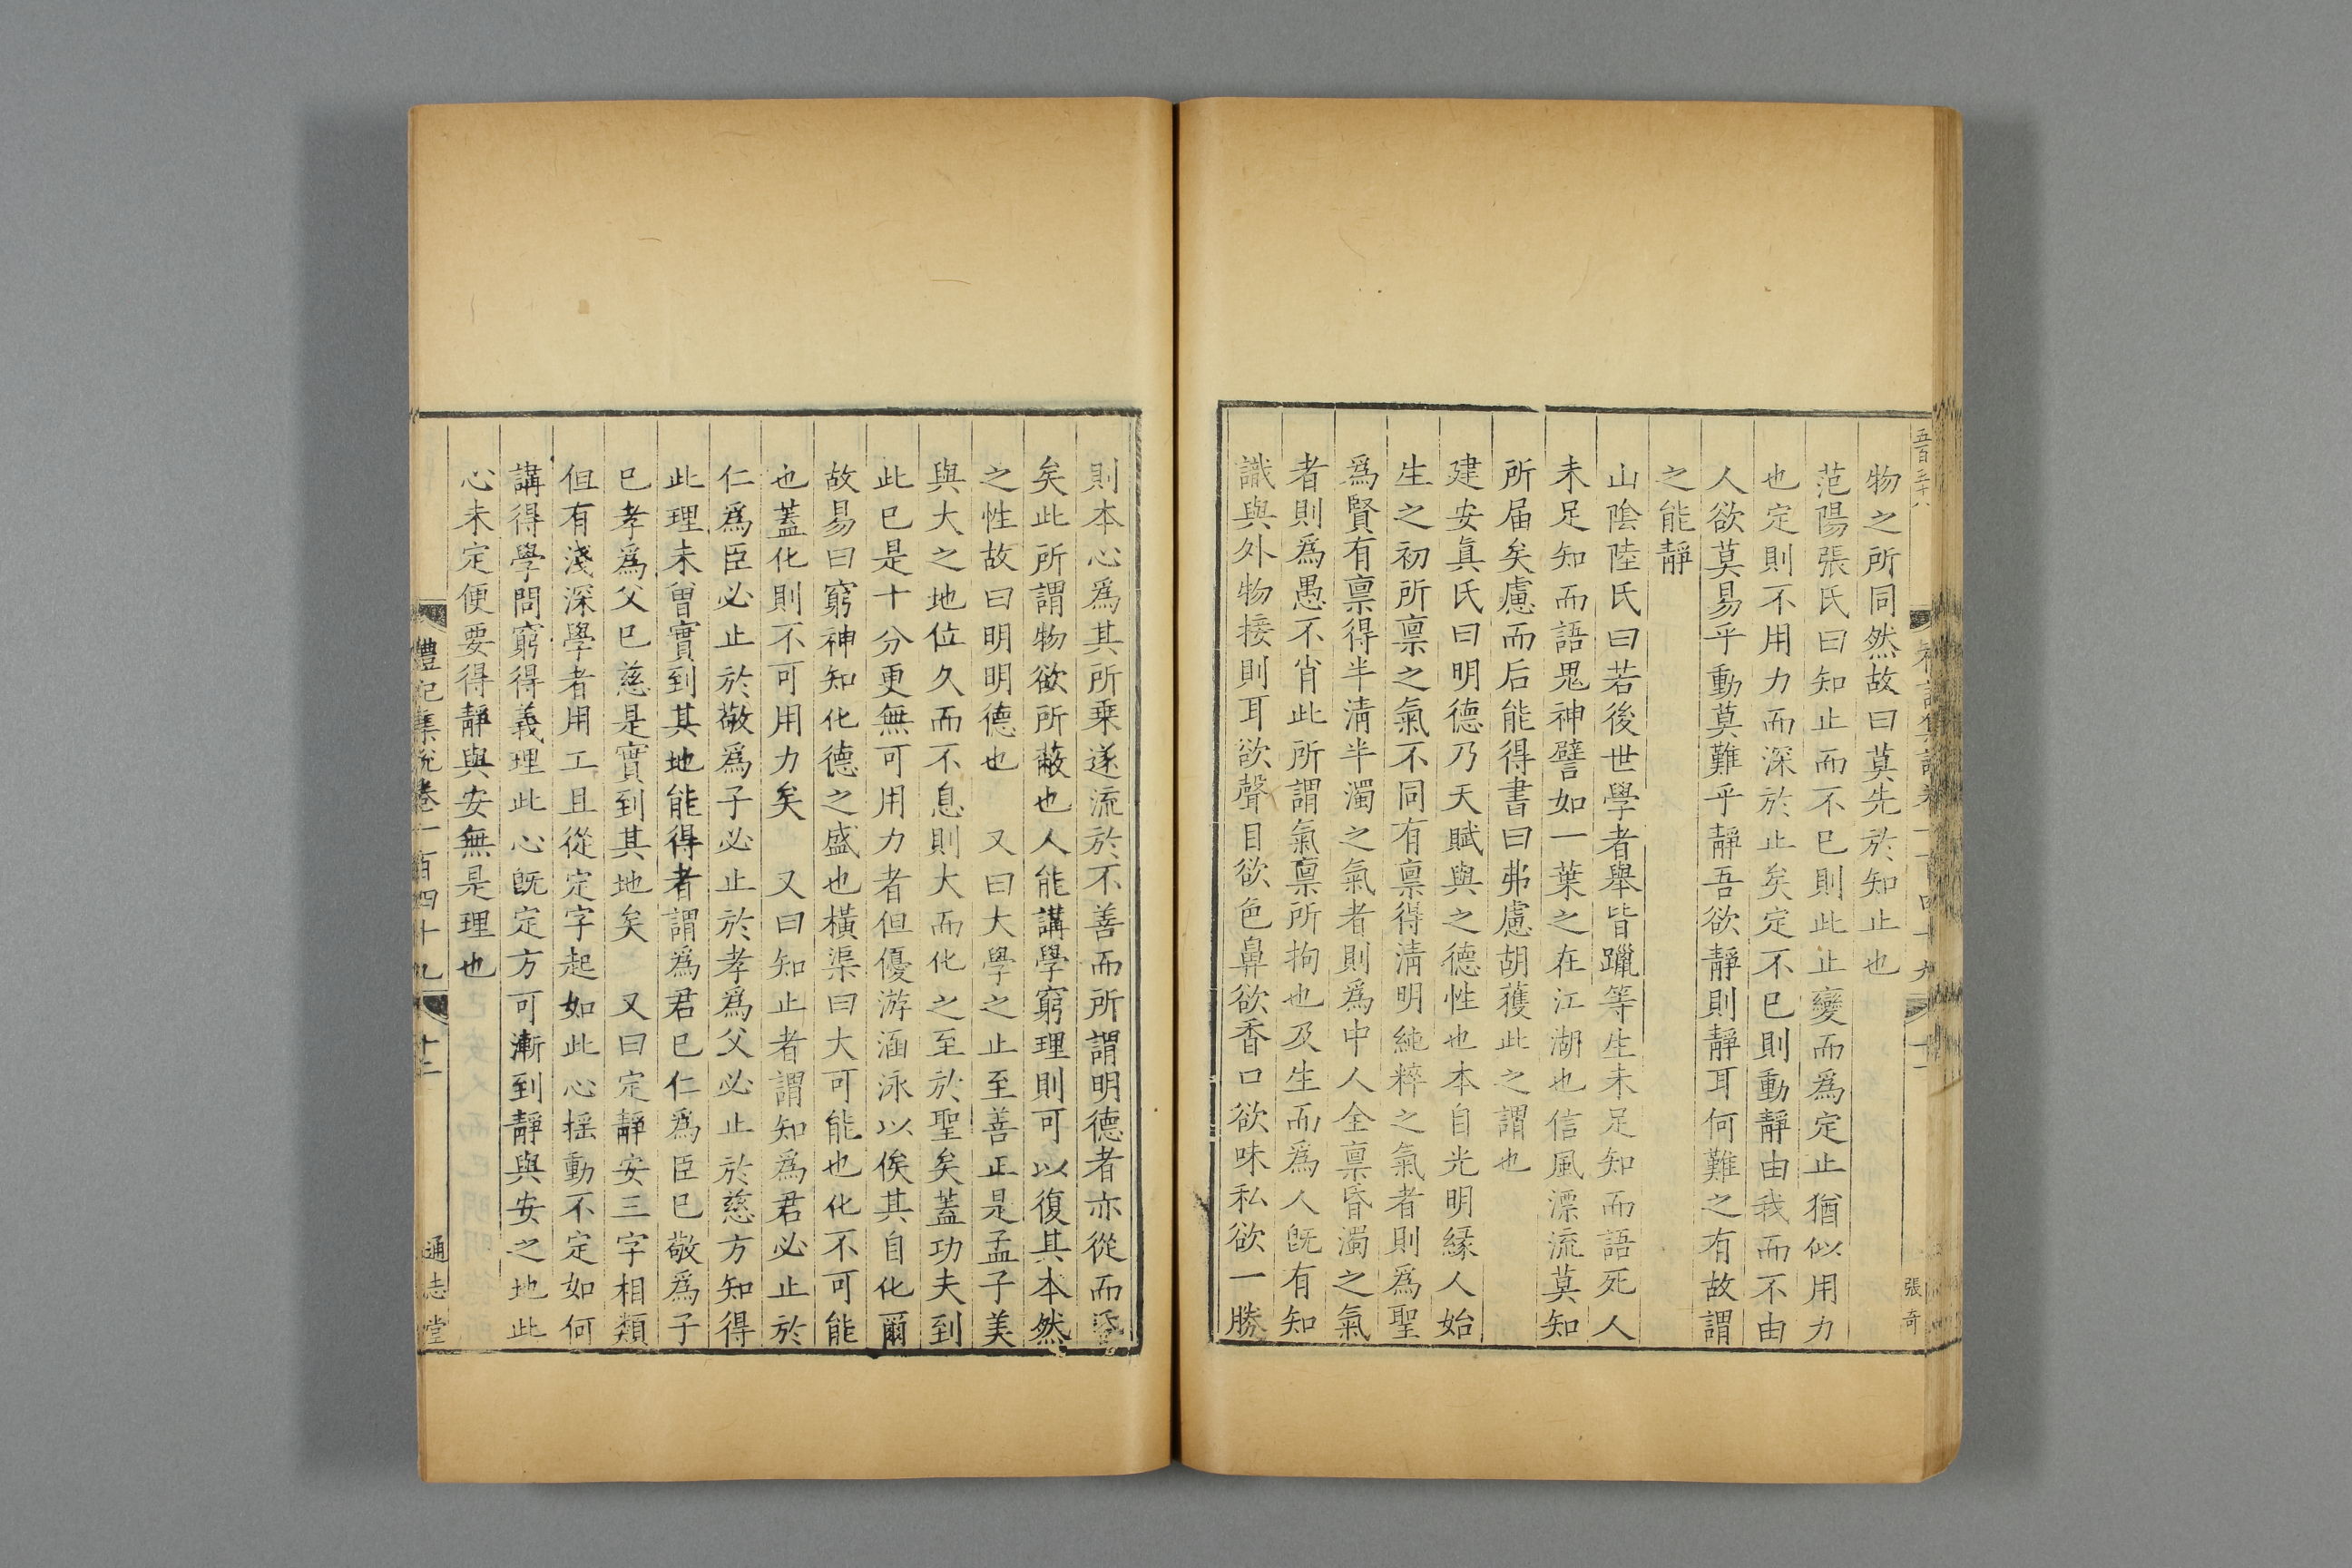 五百三十八
禮記集說卷一百四十九
十一
張奇
物之所同然故曰莫先於知止也
范陽張氏曰知止而不已則此止變而爲定止猶似用力
也定則不用力而深於止矣定不已則動靜由我而不由
人欲莫易乎動莫難乎靜吾欲靜則靜耳何難之有故謂
之能靜
山陰陸氏曰若後世學者舉皆躐等生未足知而語死人
未足知而語鬼神譬如一葉之在江湖也信風漂流莫知
所届矣慮而后能得書曰弗慮胡獲此之謂也
建安眞氏曰明德乃天賦與之德性也本自光明緣人始
生之初所禀之氣不同有禀得淸明純粹之氣者則爲聖
爲賢有禀得半淸半濁之氣者則爲中人全禀昏濁之氣
者則爲愚不肖此所謂氣禀所拘也及生而爲人旣有知
識與外物接則耳欲聲目欲色鼻欲香口欲味私欲一勝
則本心爲其所乗遂流於不善而所謂明德者亦從而昏
矣此所謂物欲所蔽也人能講學窮理則可以復其本然
之性故曰明明德也　又曰大學之止至善正是孟子美
與大之地位久而不息則大而化之至於聖矣蓋功夫到
此已是十分更無可用力者但優游涵泳以俟其自化爾
故易曰窮神知化德之盛也橫渠曰大可能也化不可能
也蓋化則不可用力矣　又曰知止者謂知爲君必止於
仁爲臣必止於敬爲子必止於孝爲父必止於慈方知得
此理未曾實到其地能得者謂爲君已仁爲臣已敬爲子
已孝爲父已慈是實到其地矣　又曰定靜安三字相類
但有淺深學者用工且從定字起如此心搖動不定如何
講得學問窮得義理此心旣定方可漸到靜與安之地此
心未定便要得靜與安無是理也
禮記集說卷一百四十九
十二
通志堂